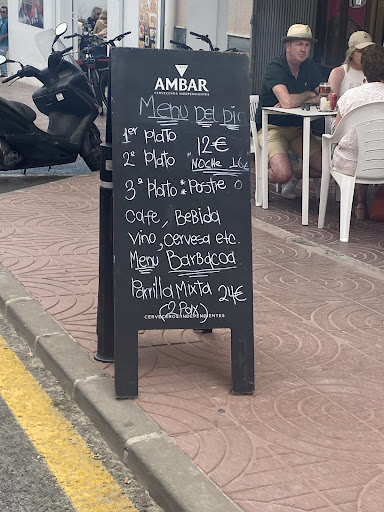 AMBAR
CERVECEROS INDEPENDIENTES
Menu Del
1er Plato 12€
2º Plato NOCHE
3º Plato Postre o
Cafe, Bebida
vino, Cervesa etc.
Menu Barbacoa
Parrilla Mixta 24€
(2 Pax)
CERVECEROS INDEPENDIENTES